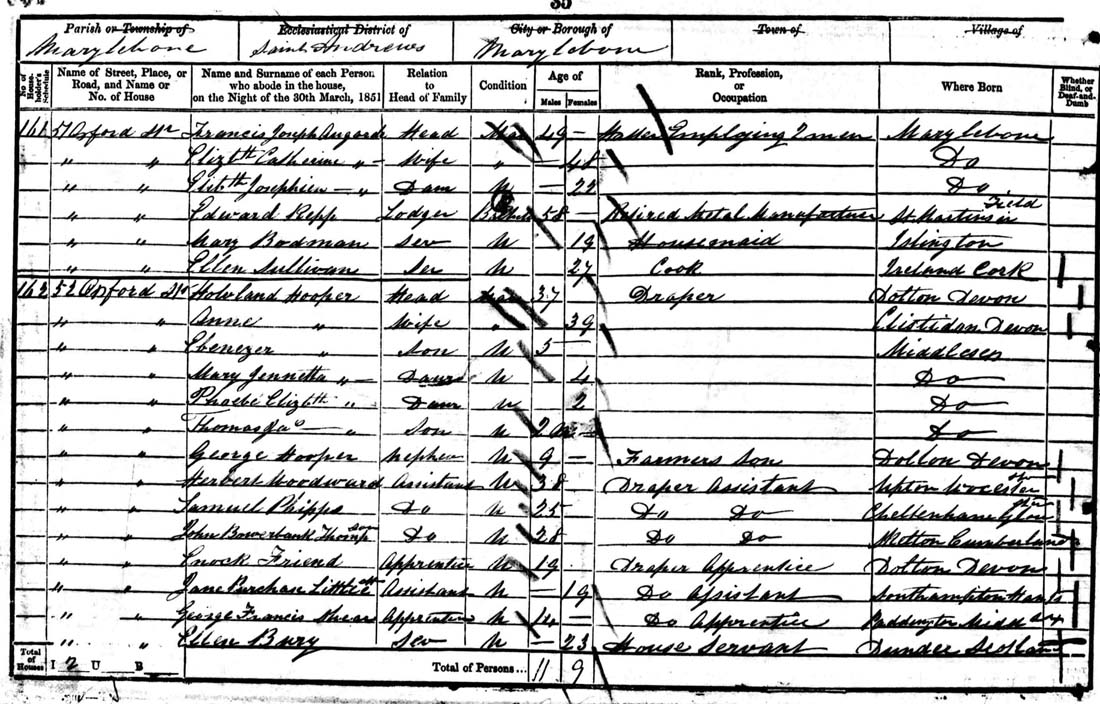 35
Parish or Township of Ecclesiastical District of City or Borough of Town of Village of
Marylebone Saint Andrews Marylebone
No. of House-holder's Schedule Name of Street, Place, or Road, and Name or No. of House Name and Surname of each Person who abode in the house, on the Night of the 30th March, 1851 Relation to Head of Family Condition Age of Males Females Rank, Profession, or Occupation Where Born Whether Blind, or Deaf-and-Dumb
161 51 Oxford St Francis Joseph Augarde Head Mar 49 – Employing 2 men Marylebone
" " Elizth Catherine " – Wife " – 48 Do
" " Josephien – " Daur U – 22 Do
" " Edward Repp Lodger 58 – Retired Metal Manufacturer St Martins in Field
" " Mary Bodman Ser U 19 Housemaid Islington
" " Ellen Sullivan Ser U 27 Cook Ireland Cork
162 52 Oxford St Howland Hooper Head Mar 37 Draper Dolton Devon
" " Anne " Wife " 39 Devon
" " Ebenezer " Son U 5 – Middlesex
" " Mary Jennetta " – Daur U 4 Do
" " Phoebe Elizth " Daur U 2 Do
" " Thomas – " Son U 2 Do
" " George Hooper Nephew U 9 – Farmers Son Dolton Devon
" " Herbert Woodward Assistant U 38 Draper Assistant Upton Worcester
" " Samuel Phipps Do U 25 Do Do Cheltenham
" " John Bowerbank Thompson Do U 28 Do Do Cumberland
" " Enock Friend Apprentice U 19 Draper Apprentice Dolton Devon
" " Jane Assistant U – 19 Do Assistant Southampton Hants
" " George Francis Shear Apprentice U 14 – Do Apprentice Paddington Middx
" " Ellen Bury Ser U – 23 House Servant Dundee Scotland
Total of Houses I 2 U B Total of Persons... 11 9